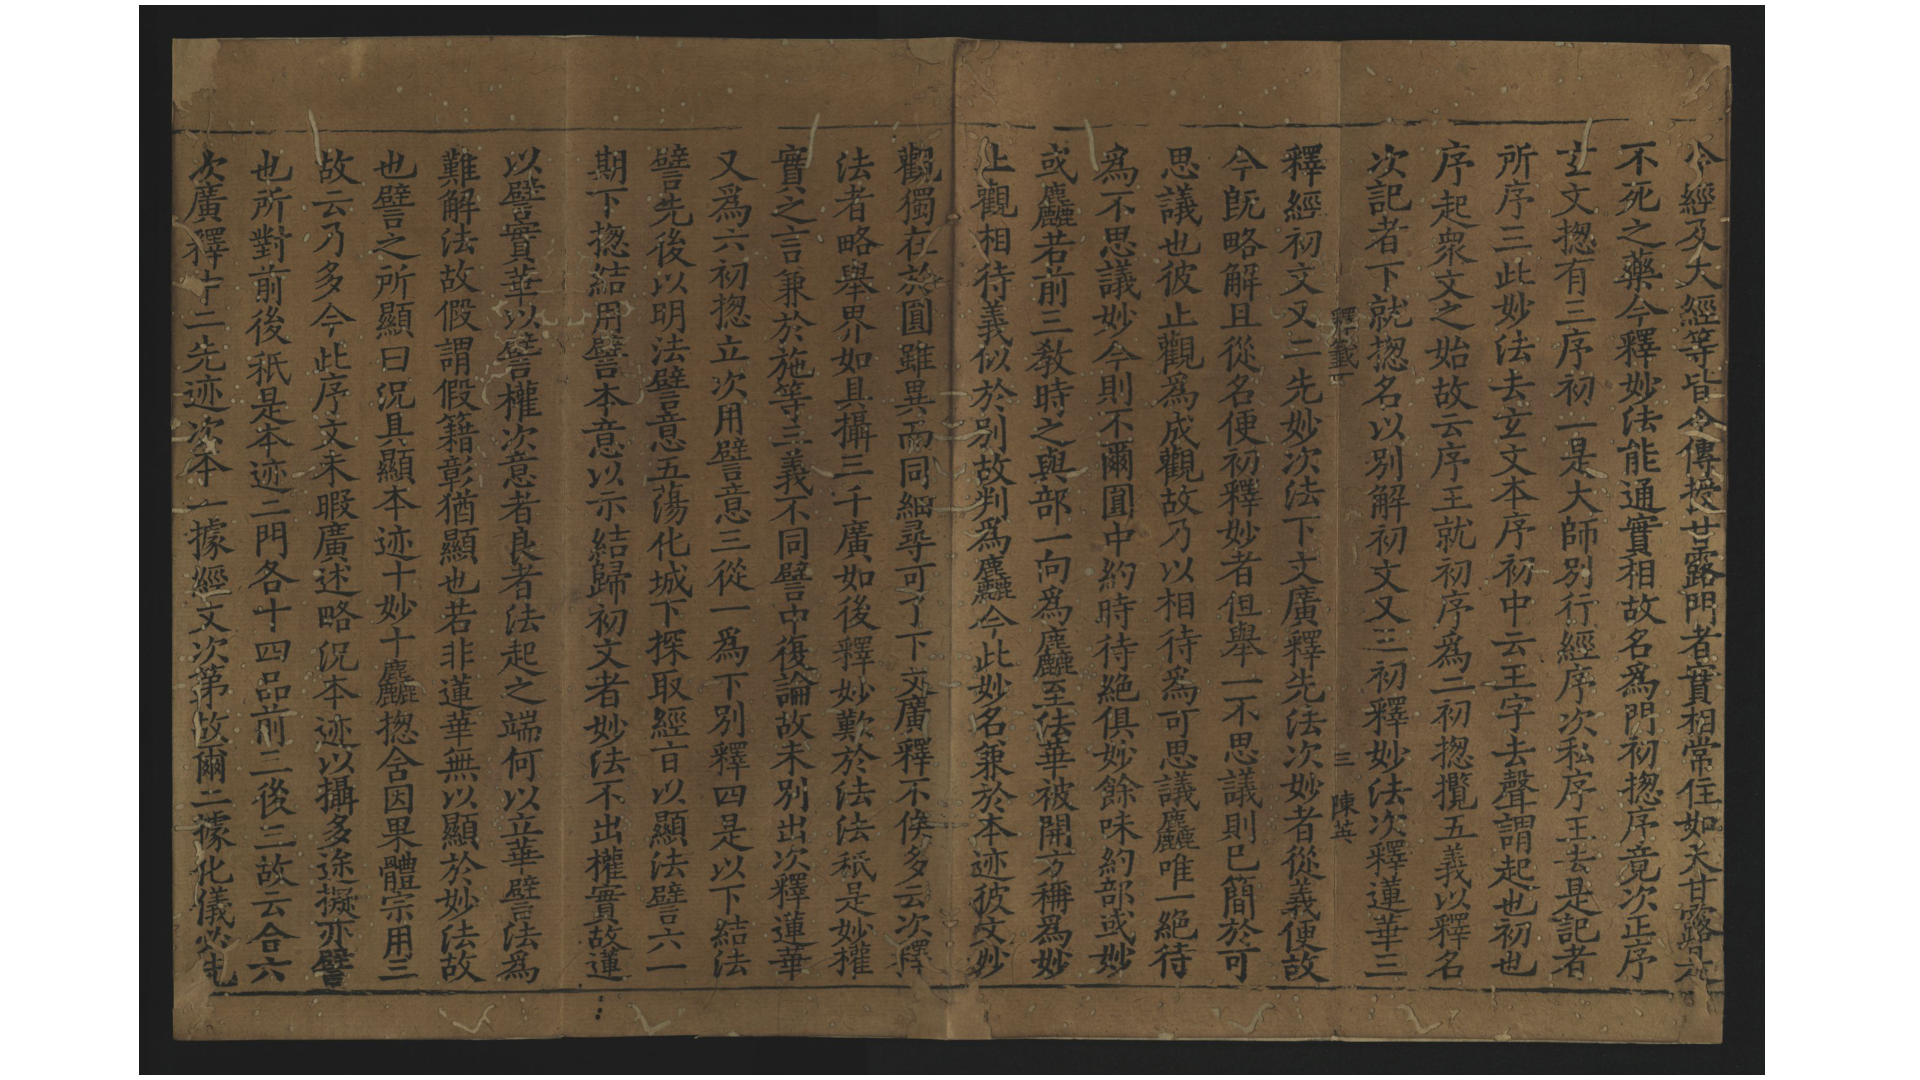 今經及大經等皆令傳授甘露門者實相常住如天甘露是
不死之藥今釋妙法能通實相故名爲門初揔序竟次正序
玄文揔有三序初一是大師別行經序次私序王去是記者
所序三此妙法去玄文本序初中云王字去聲謂起也初也
序起衆文之始故云序王就初序爲二初揔攬五義以釋名
次記者下就揔名以別解初文又三初釋妙法次釋蓮華三
釋籤一 三 陳英
釋經初文又二先妙次法下文廣釋先法次妙者從義便故
今旣略解且從名便初釋妙者但舉一不思議則已簡於可
思議也彼止觀爲成觀故乃以相待爲可思議麤唯一絕待
爲不思議妙今則不爾圓中約時待絕俱妙餘味約部或妙
或麤若前三敎時之與部一向爲麤至法華被開方稱爲妙
止觀相待義似於別故判爲麤今此妙名兼於本迹彼文妙
觀獨在於圓雖異而同細尋可了下文廣釋不俟多云次釋
法者略舉界如具攝三千廣如後釋妙歎於法法秖是妙權
實之言兼於施等三義不同譬中復論故未別出次釋蓮華
又爲六初揔立次用譬意三從一爲下別釋四是以下結法
譬先後以明法譬意五蕩化城下探取經言以顯法譬六一
期下揔結用譬本意以示結歸初文者妙法不出權實故蓮
以譬實華以譬權次意者良者法起之端何以立華譬法爲
難解法故假謂假籍彰猶顯也若非蓮華無以顯於妙法故
也譬之所顯曰況具顯本迹十妙十麤揔含因果體宗用三
故云乃多今此序文未暇廣述略況本迹以攝多途擬亦譬
也所對前後秖是本迹二門各十四品前二後三故云合六
次廣釋中二先迹次本一據經文次第故爾二據化儀必先